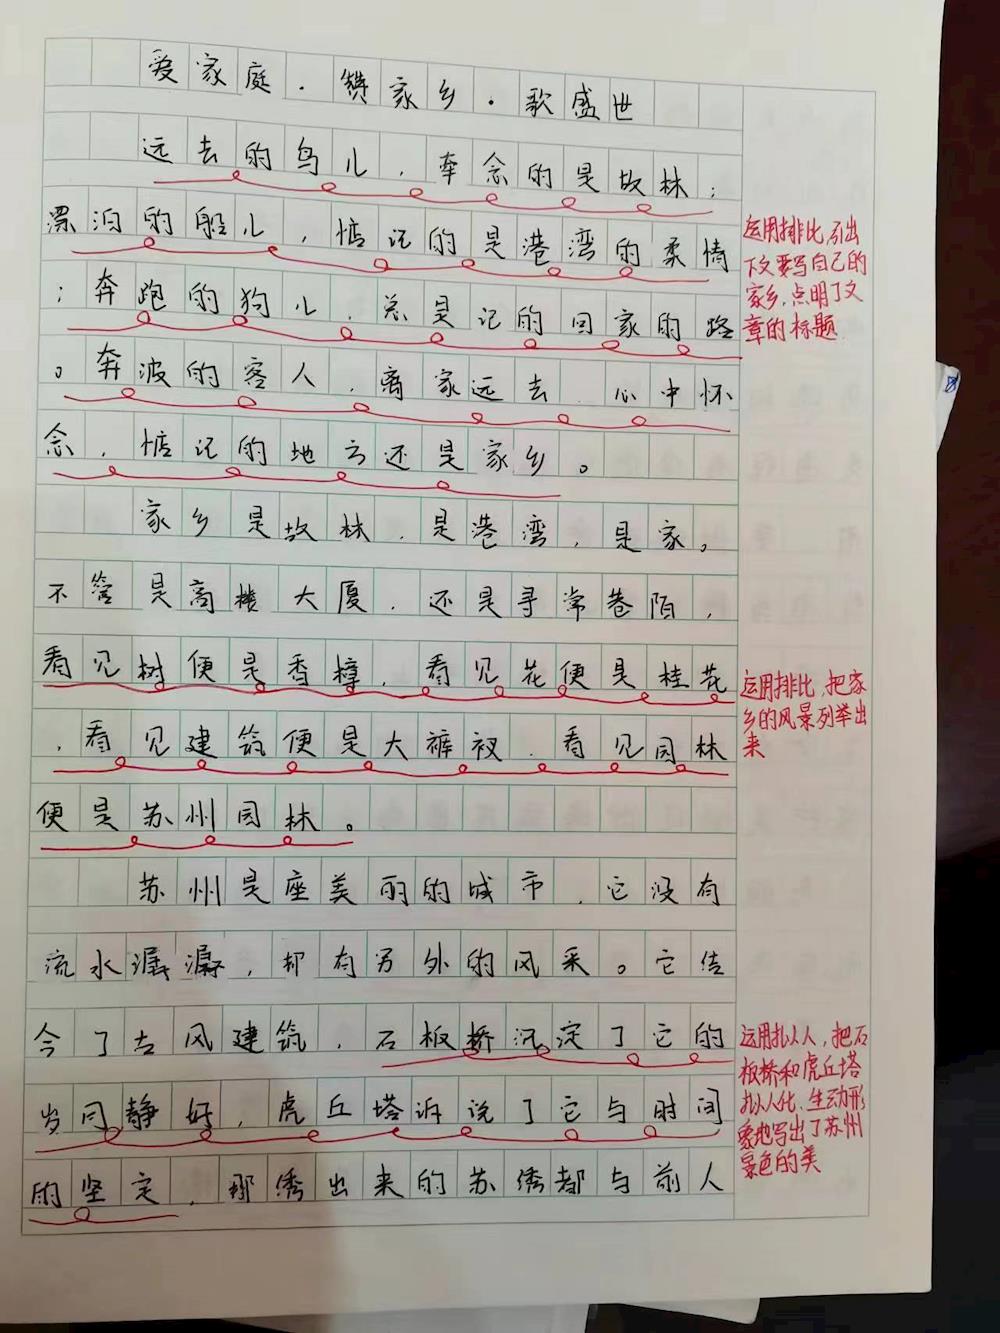 爱家庭·赞家乡·歌盛世
远去的鸟儿，牵念的是故林；
漂泊的船儿，惦记的是港湾的柔情
；奔跑的狗儿，总是记的回家的路
。奔波的客人，离家远去，心中怀
念，惦记的地方还是家乡。
家乡是故林，是港湾，是家。
不管是高楼大厦，还是寻常巷陌，
看见树便是香樟，看见花便是桂花
，看见建筑便是大裤衩，看见园林
便是苏州园林。
苏州是座美丽的城市，它没有
流水潺潺，却有另外的风采。它结
合了古风建筑，石板桥沉淀了它的
岁月静好，虎丘塔诉说了它与时间
的坚定，那绣出来的苏绣都与前人
运用排比，引出
下文要写自己的
家乡，点明了文
章的标题
运用排比，把家
乡的风景列举出
来
运用拟人，把石
板桥和虎丘塔
拟人化，生动形
象地写出了苏州
景色的美